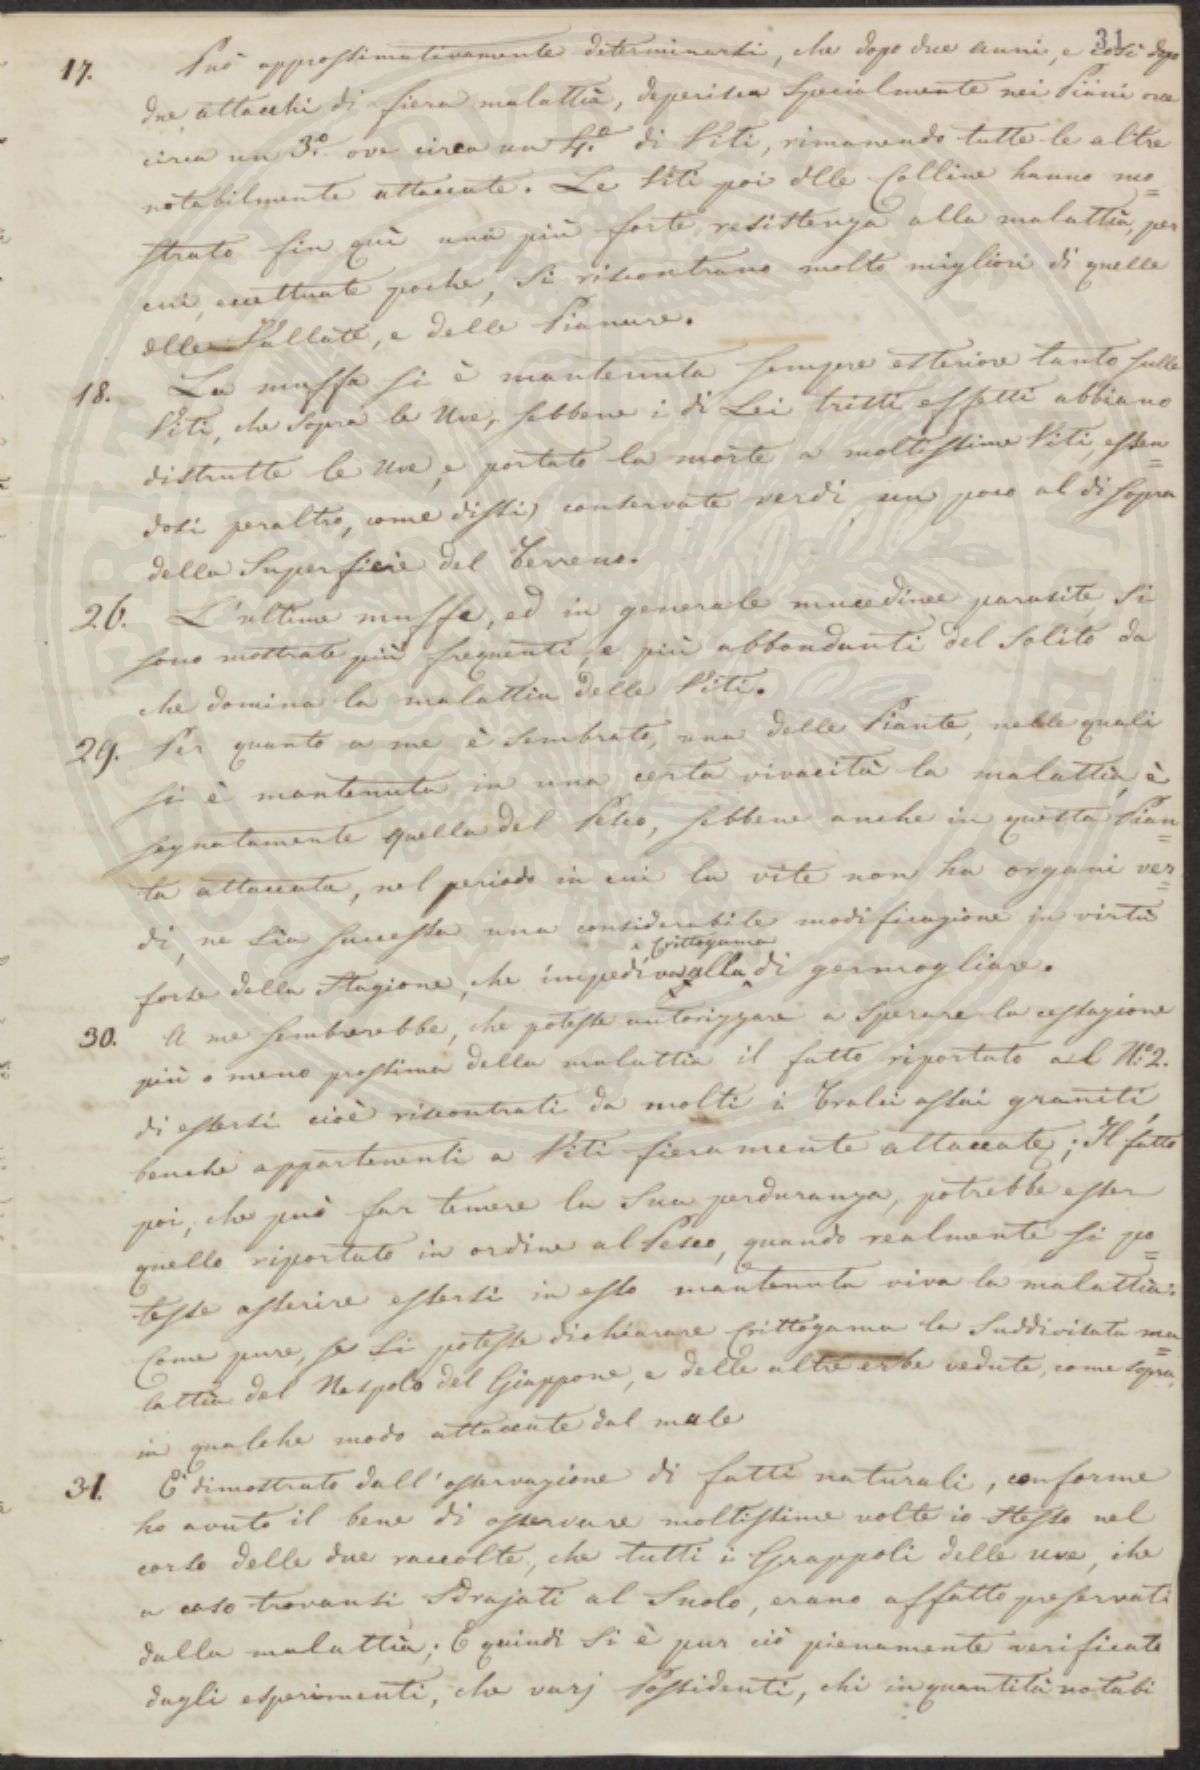 31
17. Può approssimativamente determinarsi, che dopo due anni, e così dopo
due attacchi di fiera malattia, deperisca specialmente nei Piani ove
circa un 3º. ove circa un 4º. di Viti, rimanendo tutte le altre
notabilmente attaccate. Le Viti poi dlle Colline hanno mo=
strato fin quì una più forte resistenza alla malattia, per
cui, eccettuate poche, si riscontrano molto migliori di quelle
dlle Vallate, e delle Pianure.
18. La muffa si è mantenuta sempre esteriore tanto sulle
Viti, che sopra le Uve, sebbene i di Lei tristi effetti abbiano
distrutte le Uve, e portato la morte a moltissime Viti, essen=
dosi peraltro, come dissi, conservate verdi un poco al di sopra
della Superficie del Terreno.
26. L'ultime muffe, ed in generale mucedinee parasite si
sono mostrate più frequenti, e più abbondanti del solito da
che domina la malattia delle Viti.
29. Per quanto a me è sembrato, una delle Piante, nelle quali
si è mantenuta in una certa vivacità la malattia, è
segnatamente quella del Pesco, sebbene anche in questa Pian=
ta attaccata, nel periodo in cui la vite non ha organi ver=
di, ne sia successa una considerabile modificazione in virtù
forse della Stagione, che impediva alla Crittogama di germogliare.
30. A me sembrerebbe, che potesse autorizzare a sperare la cessazione
più o meno prossima della malattia il fatto riportato al Nº. 2.
di essersi cioè riscontrati da molti i Tralci assai graniti,
benche appartenenti a Viti fieramente attaccate; Il fatto
poi, che può far temere la sua perduranza, potrebbe esser
quello riportato in ordine al Pesco, quando realmente si po=
tesse asserire essersi in esso mantenuta viva la malattia:
Come pure, se si potesse dichiarare Crittogama la suddivisata ma=
lattia del Nespolo del Giappone, e delle altre erbe vedute, come sopra,
in qualche modo attaccate dal male
31. E' dimostrato dall'osservazione di fatti naturali, conforme
ho avuto il bene di osservare moltissime volte io stesso nel
corso delle due raccolte, che tutti i Grappoli delle uve, che
a caso trovansi Sdrajati al Suolo, erano affatto preservati
dalla malattia; E quindi si è pur ciò pienamente verificato
dagli esperimenti, che varj Possidenti, chi in quantità notabi